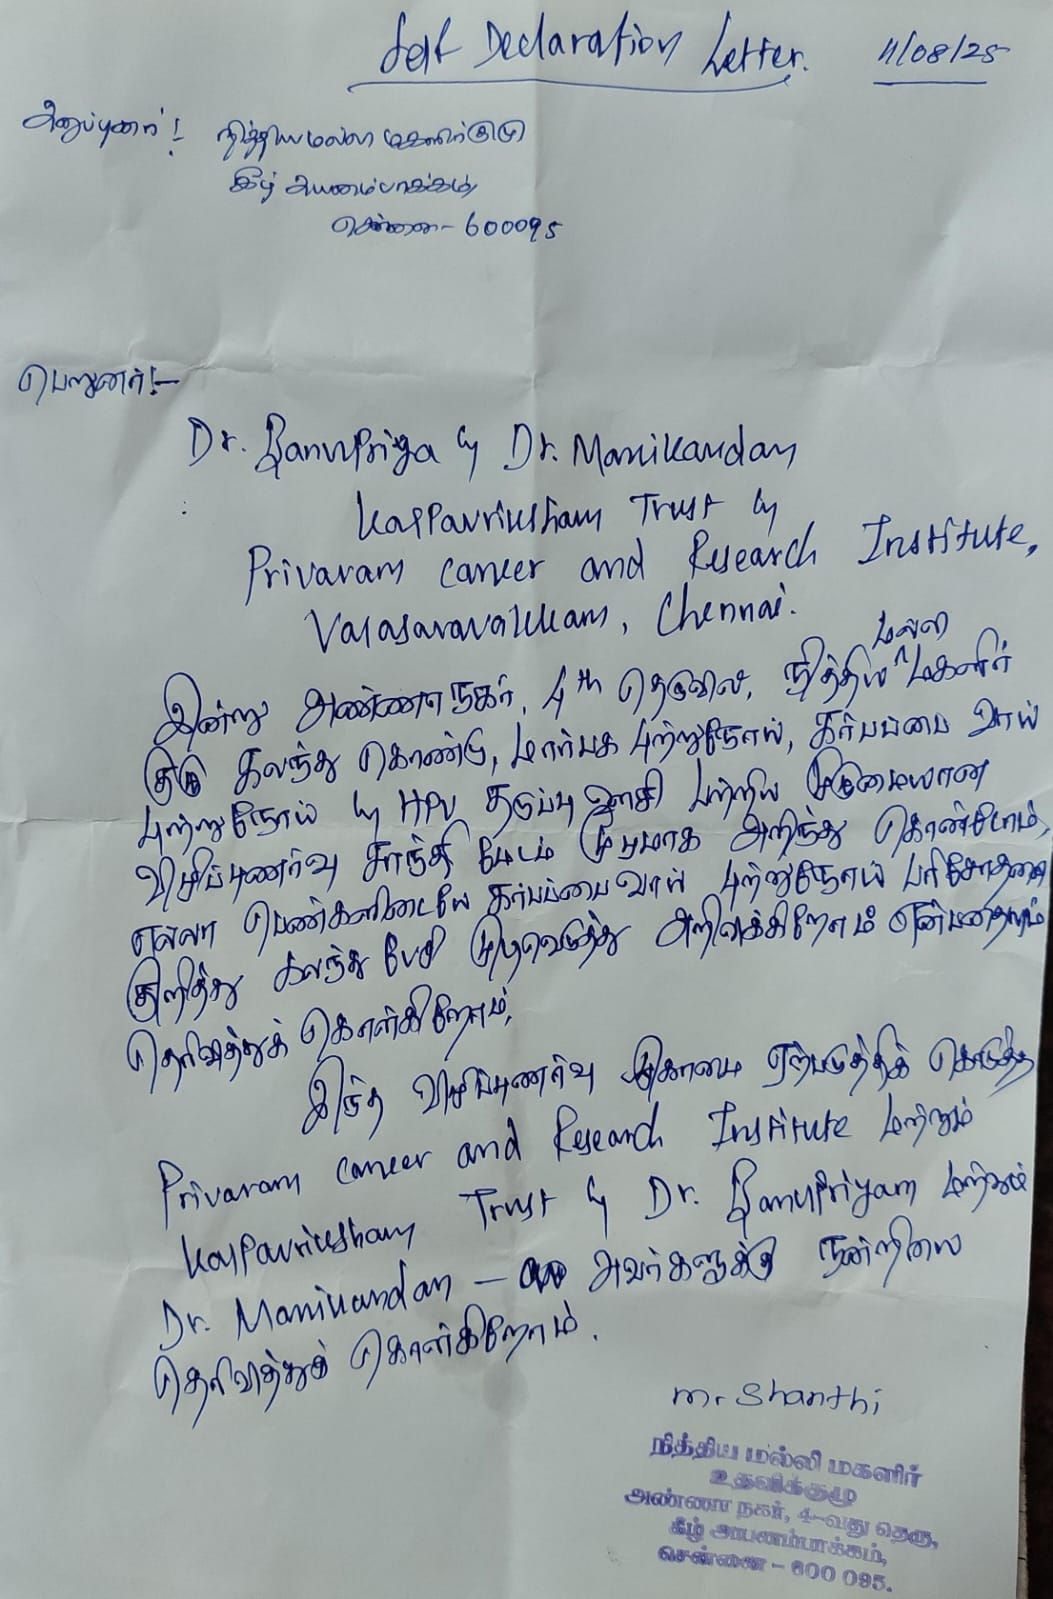 Self Declaration Letter. 11/08/25
அனுப்புனர்! நித்தியமல்லி மகளிர்குழு
கீழ் அயனம்பாக்கம்,
சென்னை - 600095
பெறுனர்!-
Dr. BanuPriya & Dr. Manikandan
Kalpavriksham Trust &
Privaram cancer and Research Institute,
Valasaravakkam, Chennai.
மல்லி
இன்று அண்ணாநகர், 4th தெருவில், நித்திய மகளிர்
குழு கலந்து கொண்டு, மார்பக புற்றுநோய், கர்பப்பை வாய்
புற்றுநோய் & HPV தடுப்பு ஊசி பற்றிய முழுமையான
விழிப்புணர்வு சாந்தி மேடம் மூலமாக அறிந்து கொண்டோம்,
எல்லா பெண்களிடையே கர்பப்பைவாய் புற்றுநோய் பரிசோதனை
குறித்து கலந்து பேசி முடிவெடுத்து அறிவிக்கிறோம் என்பதையும்
தெரிவித்துக் கொள்கிறோம்.
இந்த விழிப்புணர்வு ஏற்படுத்திக் கொடுத்த
Privaram cancer and Research Institute மற்றும்
Kalpavriksham Trust & Dr. BanuPriyam மற்றும்
Dr. Manikandan - அவர்களுக்கு நன்றியை
தெரிவித்துக் கொள்கிறோம்.
M. Shanthi
நித்திய மல்லி மகளிர்
உதவிக்குழு
அண்ணா நகர், 4-வது தெரு,
கீழ் அயனம்பாக்கம்,
சென்னை - 600 095.